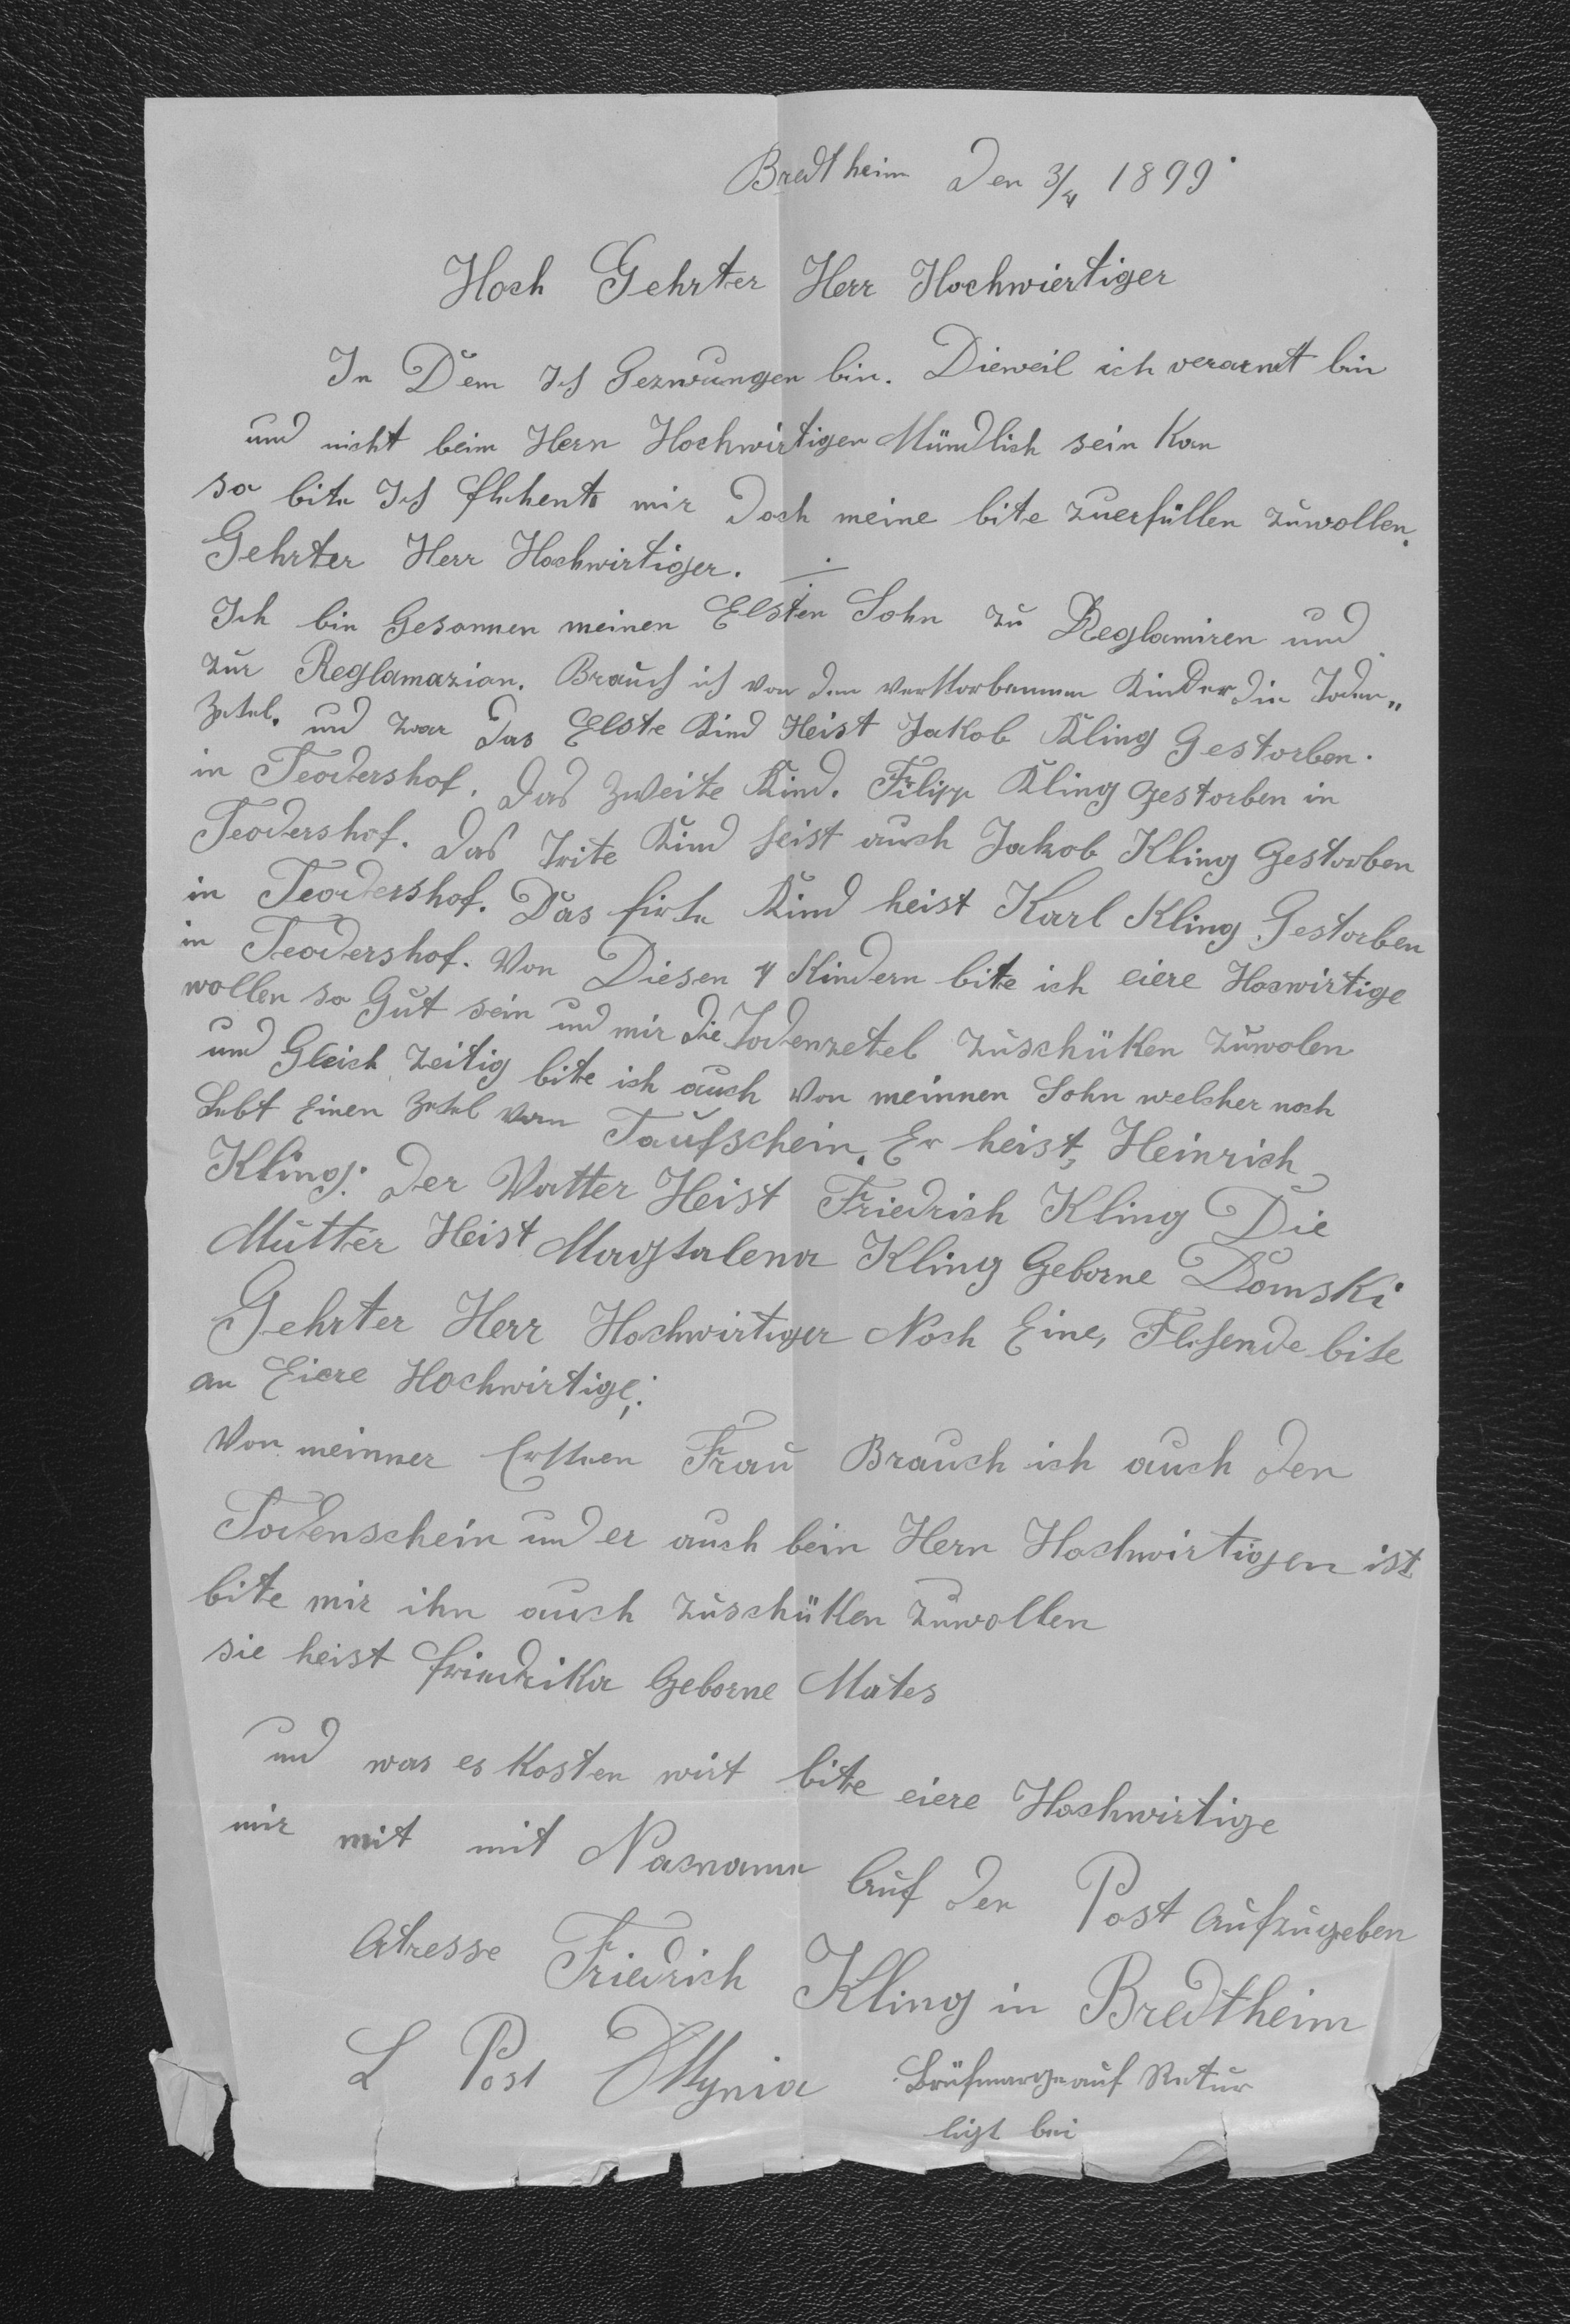 Bredtheim Den 3/4 1899
Hoch Gehrter Herr Hochwiertiger
In Dem Ich Gezwungen bin. Dieweil ich verarmt bin
und nicht beim Hern Hochwirtigen Mündlich sein Kan
so bite Ich flehent mir doch meine bite zuerfüllen zuwollen.
Gehrter Herr Hochwirtiger.
Ich bin Gesonnen meinen Elsten Sohn zu Reglamiren und
zur Reglamazion. Brauch ich von den verstorbennen Kinder die Toden„
Zetel. und zwar das Elste Kind Heist Jakob Kling Gestorben.
in Teodershof. Das Zweite Kind. Filipp Kling gestorben in
Teodershof. Das Trite Kind heist auch Jakob Kling Gestorben
in Teodershof. Das firte Kind heist Karl Kling Gestorben
in Teodershof. Von Diesen 4 Kindern bite ich eiere Hocwirtige
wollen so Gut sein und mir die Todenzetel zuschüken zuwolen
und Gleich Zeitig bite ich auch von meinnen Sohn welcher noch
Lebt Einen Zetel vom Taufschein. Er heist, Heinrich
Kling: Der Vatter Heist Friedrich Kling Die
Mutter Heist Magtalena Kling Geborne Domski
Gehrter Herr Hochwirtiger Noch Eine, Flehende bite
an Eiere Hochwirtige:
Von meinner Ersten Frau Brauch ich auch den
Todenschein und er auch bein Hern Hochwirtigen ist
bite mir ihn auch zuschüken zuwollen
sie heist friedrika Geborne Mates
und was es Kosten wirt bite eiere Hochwirtige
mir mit mit Nacnamn Auf der Post Aufzugeben
Atresse Friedrich Kling in Bredtheim
L Post Ottynia Brüfmarge auf Retur
ligt bei